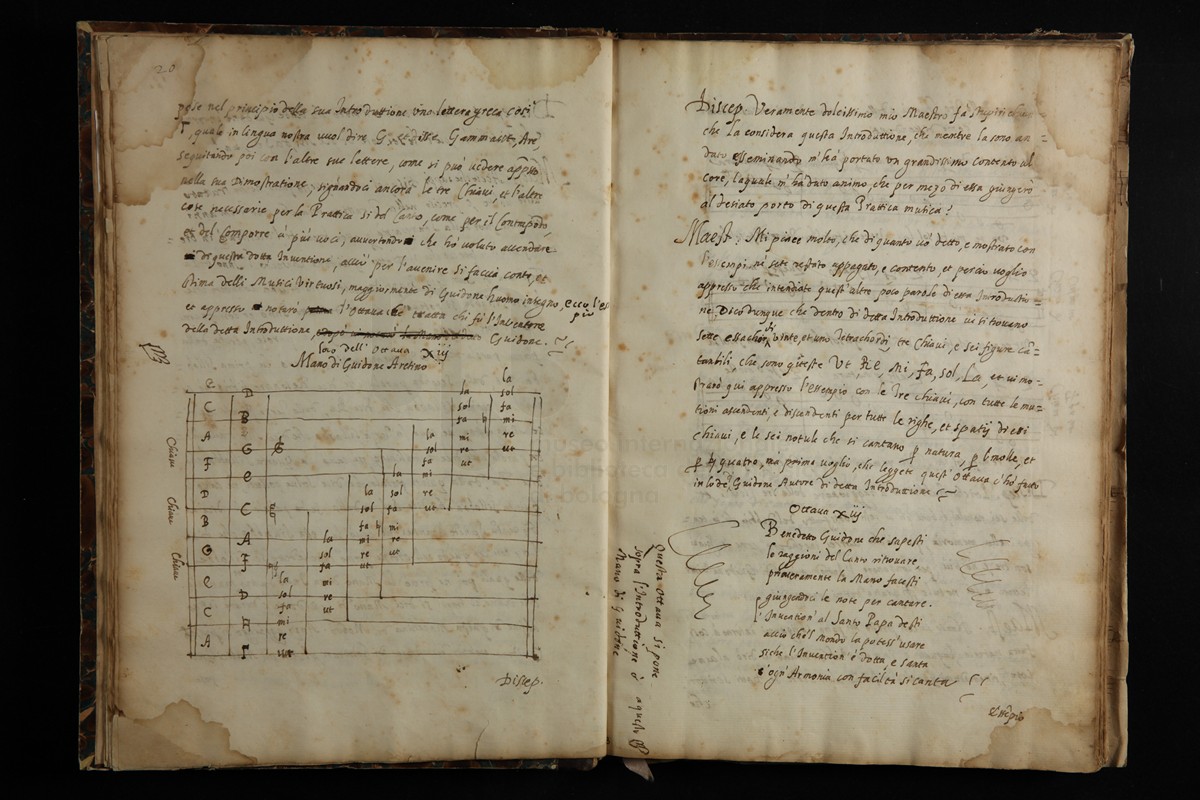 20
pose nel principio della sua Introduttione una lettera greca cosi
Γ, quale in lingua nostra vuol dire G. et disse Gammaut, Are,
seguitando poi con l'altre sue lettere, come si può vedere appsº
nella sua Dimostratione, signandoci ancora le tre Chiavi, et l'altre
cose necessarie per la Prattica si del Canto, come per il Contrapūto,
et del Comporre à più voci, avvertendovi che hò voluto accendare
di questa dotta Inventione, acciò per l'avenire si faccia conto, et
stima delli Musici Virtuosi, maggiormente di Guidone huomo insegno, ecco l'es
pio
et appresso noterò l'Ottava che tratta chi fù l'Inventore
della detta Introduttione Guidone.
sono dell' Ottava Xiij
Mano di Guidone Aretino
E D la
C la sol
B sol fa
A fa ♮ mi
G la mi re
F sol re ut
fa ut
e la mi
D la sol re
C sol fa ut
B fa ♮ mi
A la mi re
G sol re ut
F fa ut
E la mi
D sol re
C fa ut
♮ mi
A re
Γ ut
Chiave
Chiave
Chiave
Discep.
Questa Ottava si pone
sopra l'Introduttione ò
Mano di Guidone
a questo
Discep. Veramente dolcissimo mio Maestro fà stupir
che la considera questa Introduttione, che mentre la sono an=
dato esseminando m'hà portato un grandissimo contento al
core, laquale m'hà dato animo, che per mezo di essa giungerò
al desiato porto di questa Prattica musica?
Maest. Mi piace molto, che di quanto vò detto, e mostrato con
l'essempi nè sete restato appagato, e contento, et perciò voglio
appresso che intendiate quest'altre poco parole di essa Introduttio=
ne. Dico dunque che dentro di detta Introduttione vi si trovano
sette essachordi, vinte, et uno Tetrachordi, tre Chiavi, e sei figure cā=
tabili, che sono queste Ut, Re, Mi, fa, sol, La, et vi mo=
strarò qui appresso l'essempio con le Tre chiavi, con tutte le mu=
tationi ascendenti e discendenti per tutte le righe, et spatij di essi
chiavi, e le sei notule che si cantano p natura, p b molle, et
p ♮ quatro, ma prima voglio, che leggete quest'Ottava c'hò fatto
in lode di Guidone Autore di detta Introduttione
Ottava Xiij
Benedetto Guidone che sapesti
le raggioni del Canto ritrovare
primeramente la Mano facesti
giungendoci le note per cantare.
l'Invention' al Santo Papa desti
acciò che'l mondo la potess' usare
siche l'Invention' è dotta, e santa
e ogn' Armonia con facilta si canta
Essēpio